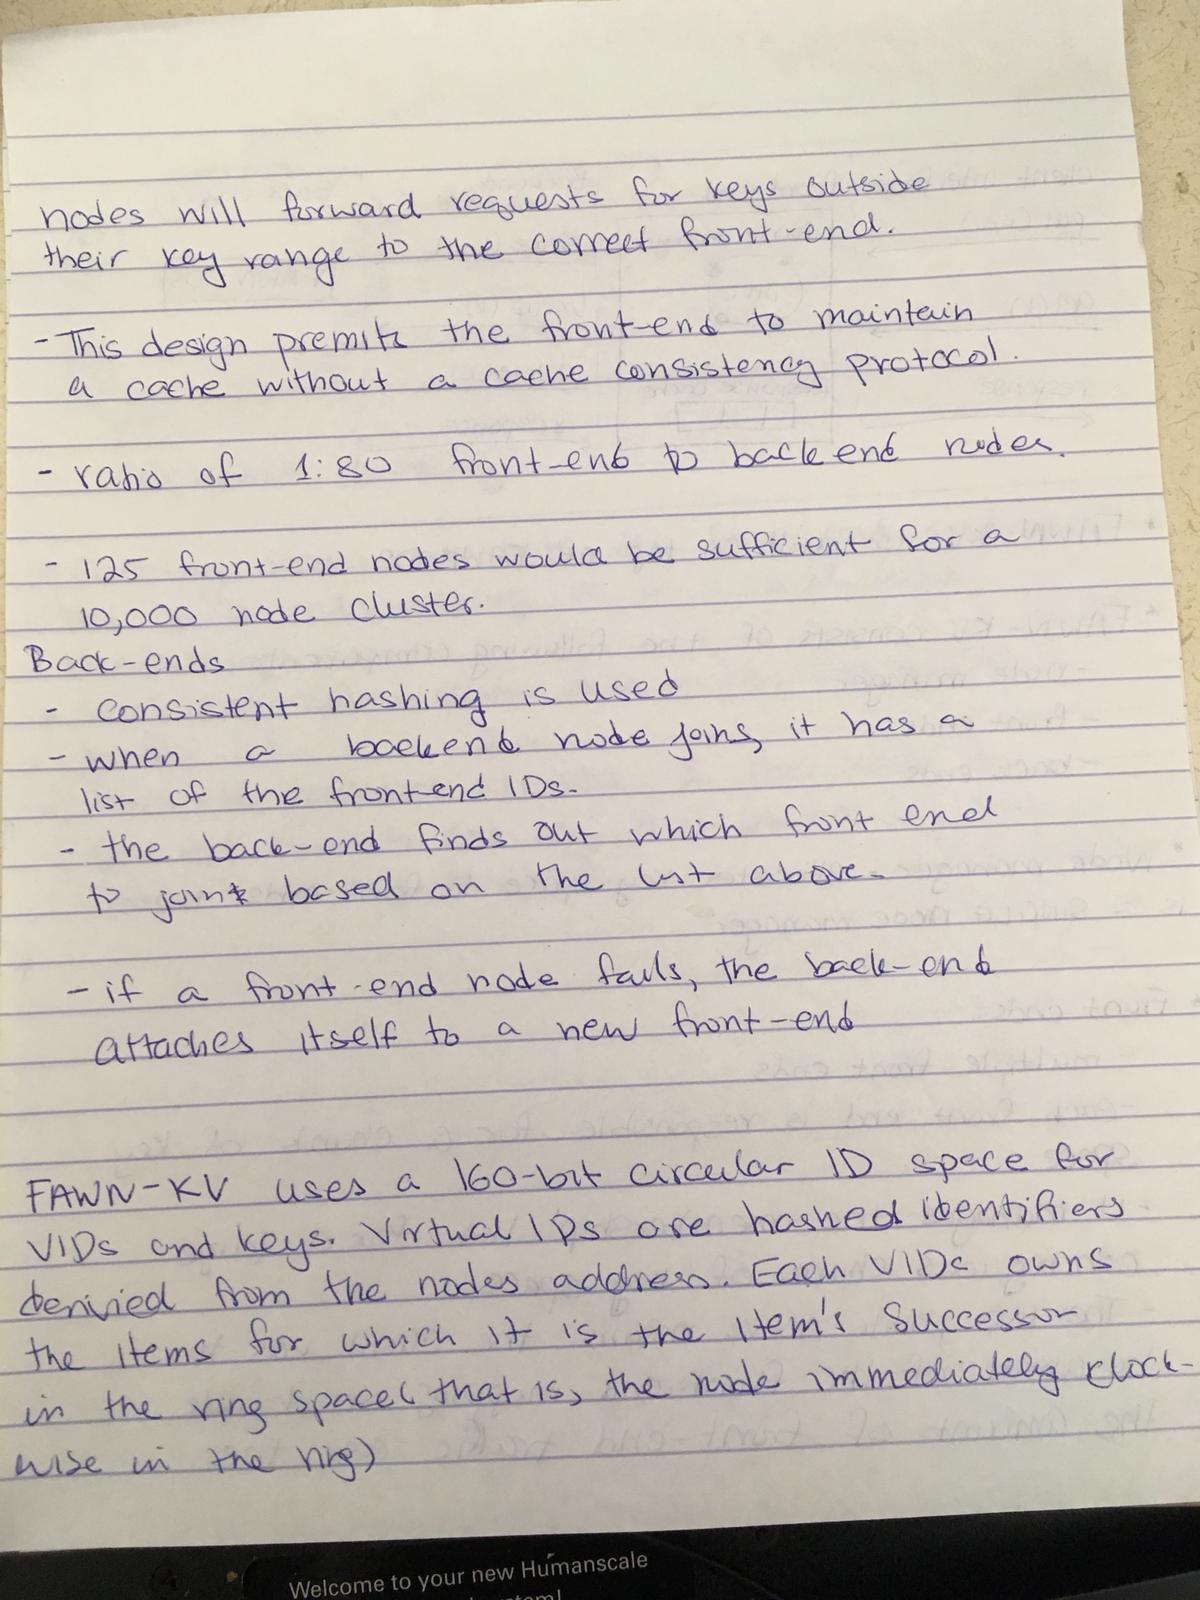 nodes will forward requests for keys outside
their key range to the correct front-end.
- This design premits the front-end to maintain
a cache without a cache consistency protocol.
- ratio of 1:80 front-end to back end nodes.
- 125 front-end nodes would be sufficient for a
10,000 node cluster.
Back-ends
- consistent hashing is used
- when a backend node joins, it has a
list of the front-end IDs.
- the back-end finds out which front end
to join based on the list above.
- if a front-end node fails, the back-end
attaches itself to a new front-end
FAWN-KV uses a 160-bit circular ID space for
VIDs and keys. Virtual IDs are hashed identifiers
derivied from the nodes address. Each VIDs owns
the items for which it is the item's successor
in the ring space (that is, the node immediately clock-
wise in the ring)
Welcome to your new Humanscale